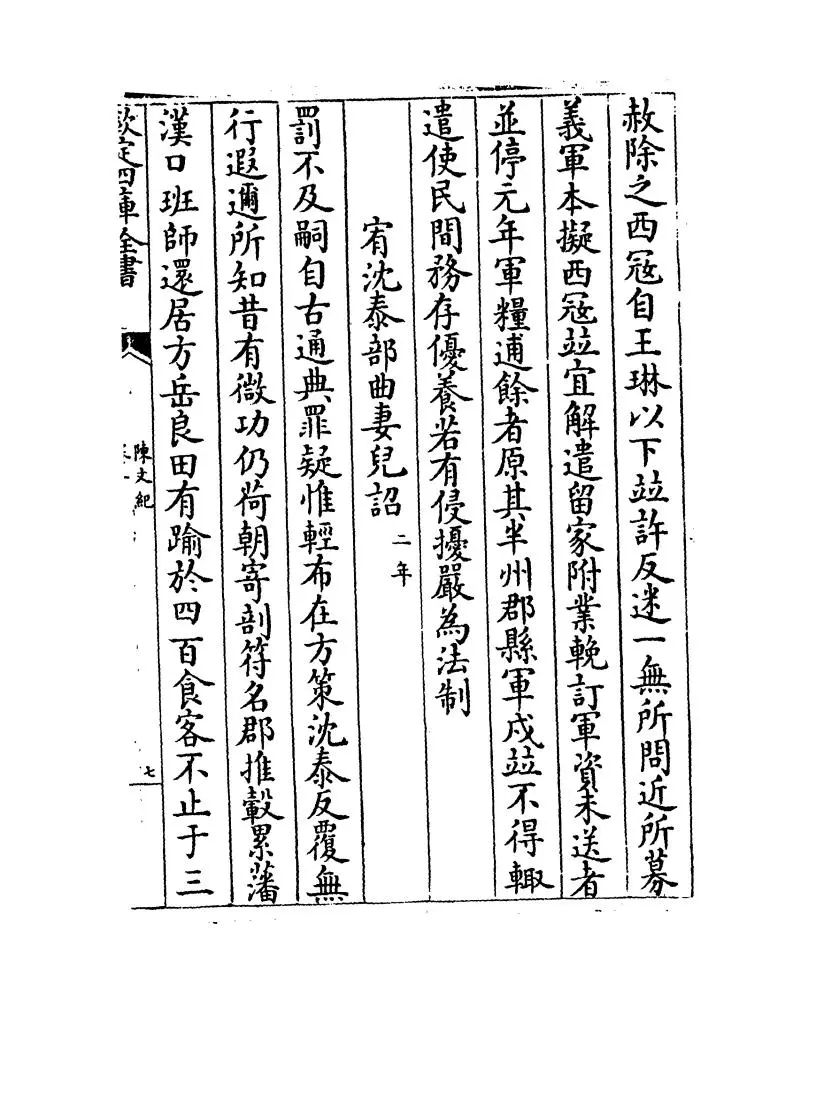 赦除之西冦自王琳以下竝許反迷一無所問近所募
義軍本擬西冦竝宜解遣留家附業輓訂軍資未送者
並停元年軍糧逋餘者原其半州郡縣軍戍竝不得輙
遣使民間務存優養若有侵擾嚴為法制
宥沈泰部曲妻兒詔 二年
罰不及嗣自古通典罪疑惟輕布在方策沈泰反覆無
行遐邇所知昔有微功仍荷朝寄剖符名郡推轂累藩
漢口班師還居方岳良田有踰於四百食客不止于三
欽定四庫全書
陳文紀
七